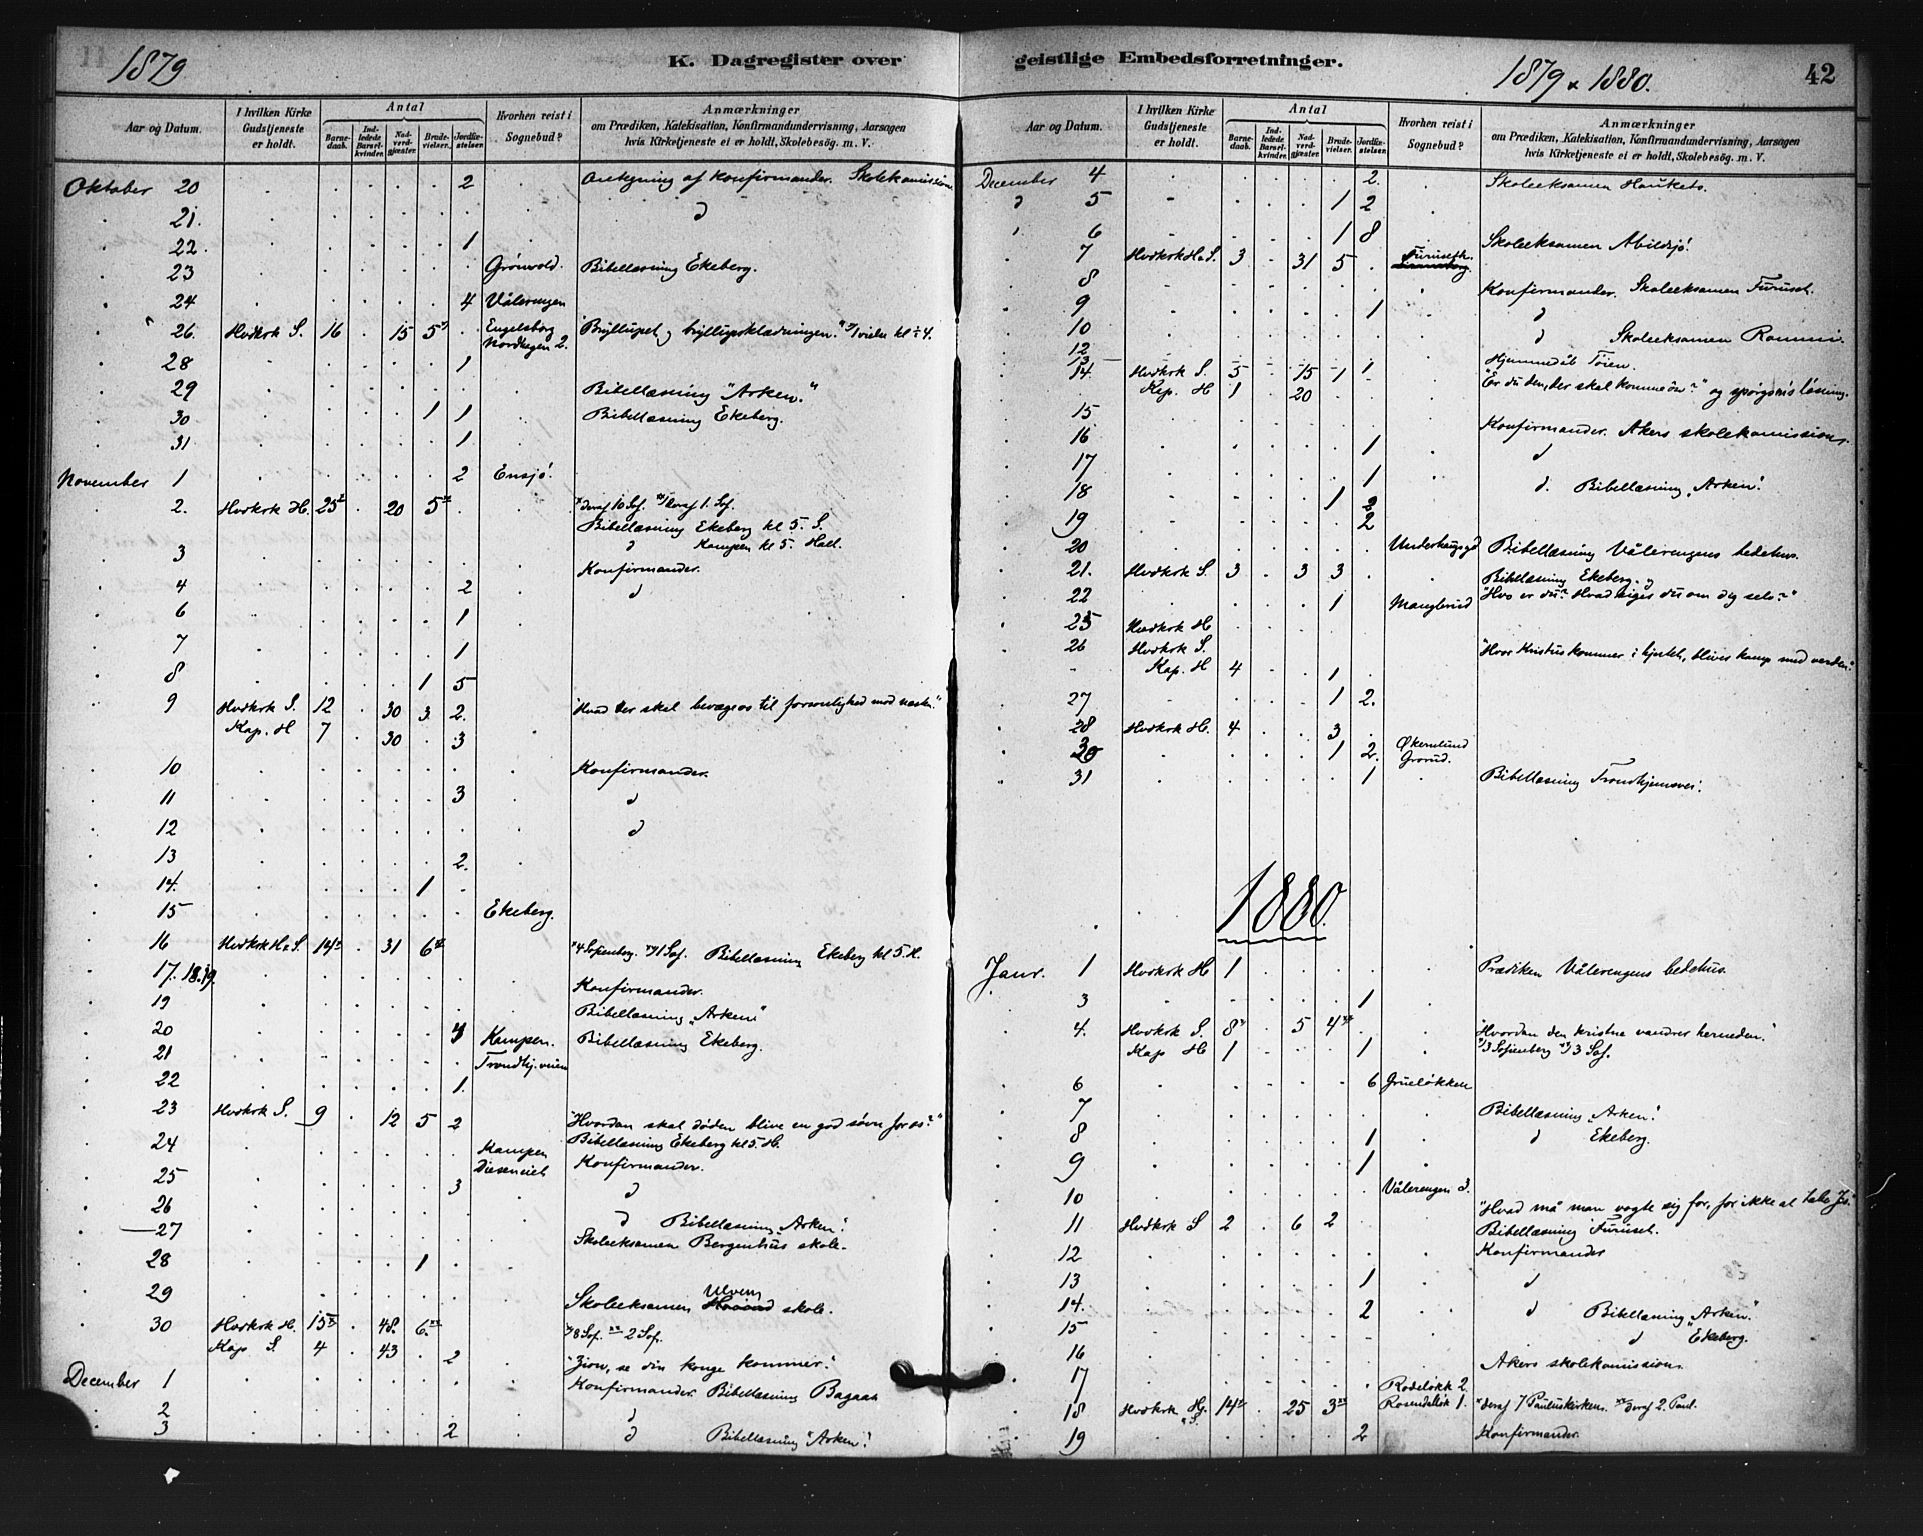 1879
K. Dagregister over
Aar og Datum. I hvilken Kirke Gudstjeneste er holdt. Antal Barnedaab. Indledede Barselkvinder. Nadverdgjæster. Brudevielser. Jordfæstelser. Hvorhen reist i Sognebud? Anmærkninger om Prædiken, Katekisation, Konfirmandundervisning, Aarsagen hvis Kirketjeneste ei er holdt, Skolebesøg. m. V.
Oktober 20 2 Antegning af Konfirmander. Skolekomission
21. d
22. 1
23 Grønvold. Bibellæsning Ekeberg.
24 4 Vålerengen
26. Hvdkrk S. 16 15 5 Engelsborg "Bryllupet og bryllupsklædningen."
Nordhagen 2.
28 1
29 Bibellæsning "Arken."
30 1 1 Bibellæsning Ekeberg.
31 1
November 1 2 Ensjø.
2. Hvdkrk H. 25x 20 5xx x deraf 10 Sof. xx deraf 1. Sof.
Bibellæsning Ekeberg kl 5. S.
d Kampen kl 5. Hall.
3 Konfirmander.
4 2 d
6 1
7 1
8 1 5
9 Hvdkrk S. 12 30 3 2. "Hvad der skal bevæge os til forsonlighed med næsten."
Kap. H 7 30 3
10 Konfirmander.
11 3 d
12 d
13 2.
14. 1
15 Ekeberg.
16 Hvdkrk H & S. 14x 31 6xx x 4 Sofienberg. xx 1 Sof. Bibellæsning Ekeberg kl 5. H.
17. 18. 19. Konfirmander.
19 Bibellæsning "Arken"
20 4 Kampen. Bibellæsning Ekeberg.
21 Trondhj.veien
22 1.
23 Hvdkrk S. 9 12 5 2 "Hvordan skal døden blive en god søvn for os?"
Bibellæsning Ekeberg kl 5. H.
24 Kampen Konfirmander.
25 3 d
26 d Bibellæsning "Arken".
27 Skoleeksamen Bergenhus skole.
28 1
29 Skoleeksamen Ulven skole.
30 Hvdkrk H. 15x 48. 6.xx x 8 Sof. xx 2 Sof.
Kap S. 4 43 2 "Zion, se din konge kommer."
December 1 Konfirmander. Bibellæsning Bagaas
2 d
3 2 d Bibellæsning "Arken".
geistlige Embedsforretninger.
1879 & 1880.
42
Aar og Datum. I hvilken Kirke Gudstjeneste er holdt. Antal Barnedaab. Indledede Barselkvinder. Nadverdgjæster. Brudevielser. Jordfæstelser. Hvorhen reist i Sognebud? Anmærkninger om Prædiken, Katekisation, Konfirmandundervisning, Aarsagen hvis Kirketjeneste ei er holdt, Skolebesøg. m. V.
December 4 2. Skoleeksamen Hauketo.
d 5 1 2
6 1 8 Skoleeksamen Abildsjø.
7 Hvdkrk H & S. 3 31 5 Furuseth.
8 Konfirmander. Skoleeksamen Furuset.
9 1 d
10 d Skoleeksamen Rommen.
12
13 Hjemmedåb Tøien.
14. Hvdkrk S. 5 15 1 1 "Er du den, der skal komme"
Kap. H 1 20
15 Konfirmander. Akers skolekomission.
16 1 d
17 1 d. Bibellæsning "Arken".
18 1 2
19 2
20 Underhaugsgd Bibellæsning Vålerengens bedehus.
21. Hvdkrk S. 3 3 3 Bibellæsning Ekeberg.
22 1 Manglerud "Hvo er du? Hvad siges du om dig selv?"
25 Hvdkrk H
26 Hvdkrk S. "Hvor Kristus kommer i hjertet, bliver kamp med verden."
Kap. H 4 1
27 1 2.
28 Hvdkrk H. 4 3
30 1 2. Økernlund Grorud.
31 1 Bibellæsning Trondhjemsvei.
1880.
Janr. 1 Hvdkrk H 1 Prædiken Vålerengens bedehus.
3 1
4. Hvdkrk S. 8x 5 4xx "Hvordan den kristne vandrer herneden."
Kap H 1 1 x 3 Sofienberg xx 3 Sof.
6 6 Grueløkken
7 Bibellæsning "Arken".
8 1 d Ekeberg.
9 1
10 Vålerengen 3.
11 Hvdkrk S 2 6 2 "Hvad må man vogte sig for, for ikke at tabe Js."
Bibellæsning Furuset.
12 Konfirmander
13 1 d
14. 2 d Bibellæsning "Arken".
15 d "Ekeberg.
16 Akers skolekomission.
17 Rodeløkk 2.
18 Hvdkrk H. & S. 14x 25 3xx Rosendalløk 1. x deraf 7 Pauluskirken. xx deraf 2. Paul.
19 2 Konfirmander.